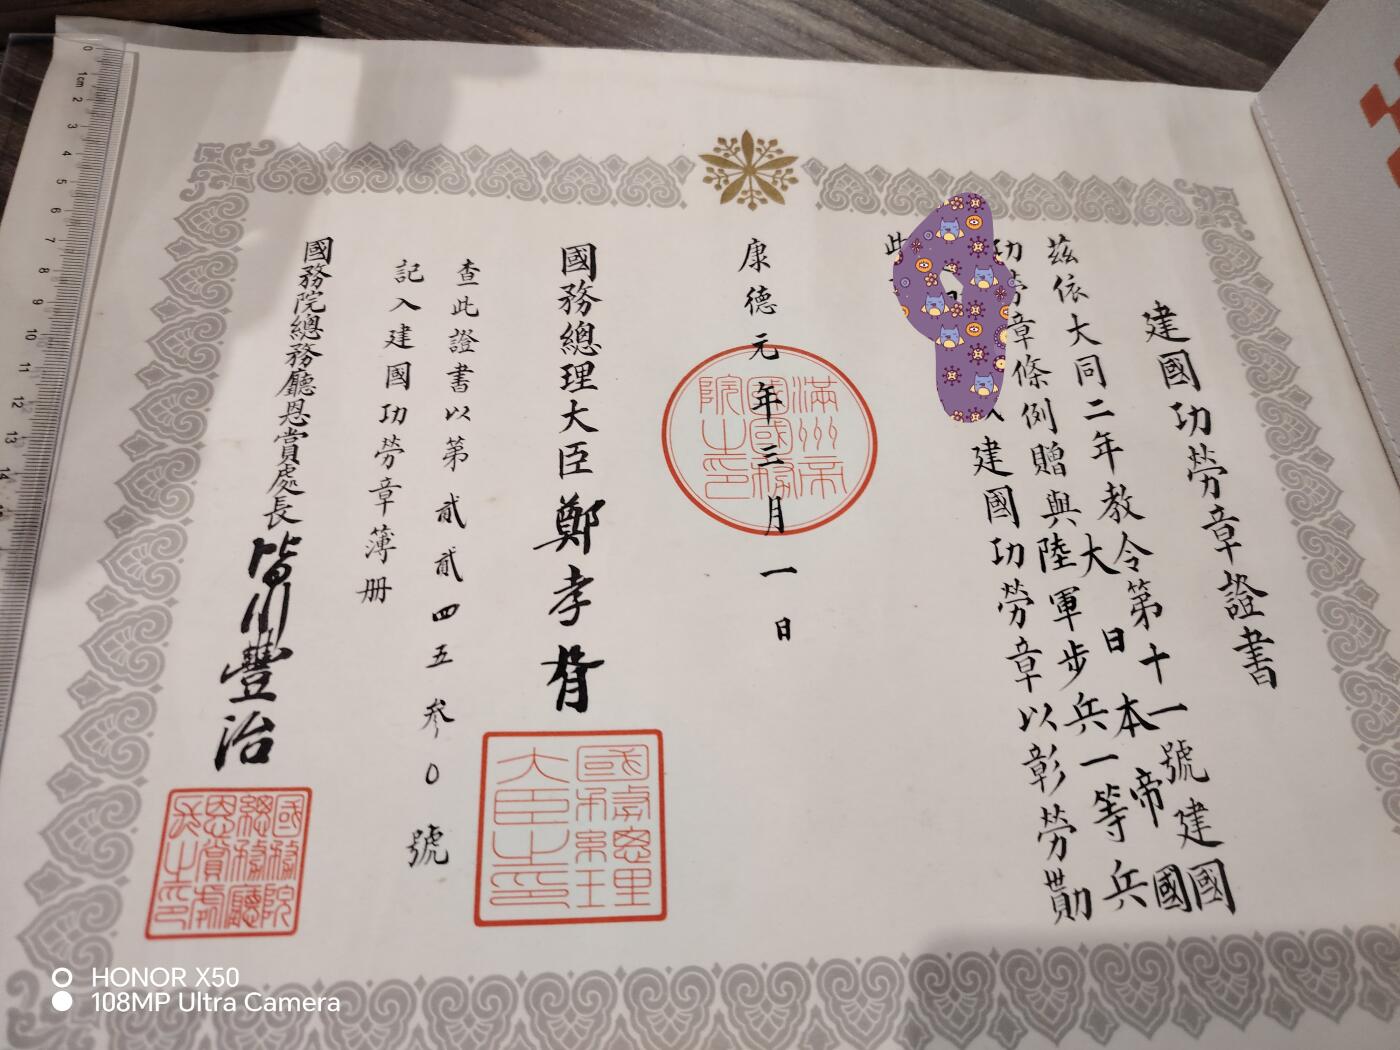 建國功勞章證書
茲依大同二年教令第十一號建國
功勞章條例贈與大日本帝國
陸軍步兵一等兵
此
建國功勞章以彰勞勩
康德元年三月一日
滿洲帝國國務院之印
國務總理大臣鄭孝胥
國務總理大臣之印
查此證書以第貳貳四五參0號
記入建國功勞章簿冊
國務院總務廳恩賞處長皆川豐治
國務院總務廳恩賞處長之印
0
1cm
2
3
4
5
6
7
8
9
10
11
12
13
14
HONOR X50
108MP Ultra Camera